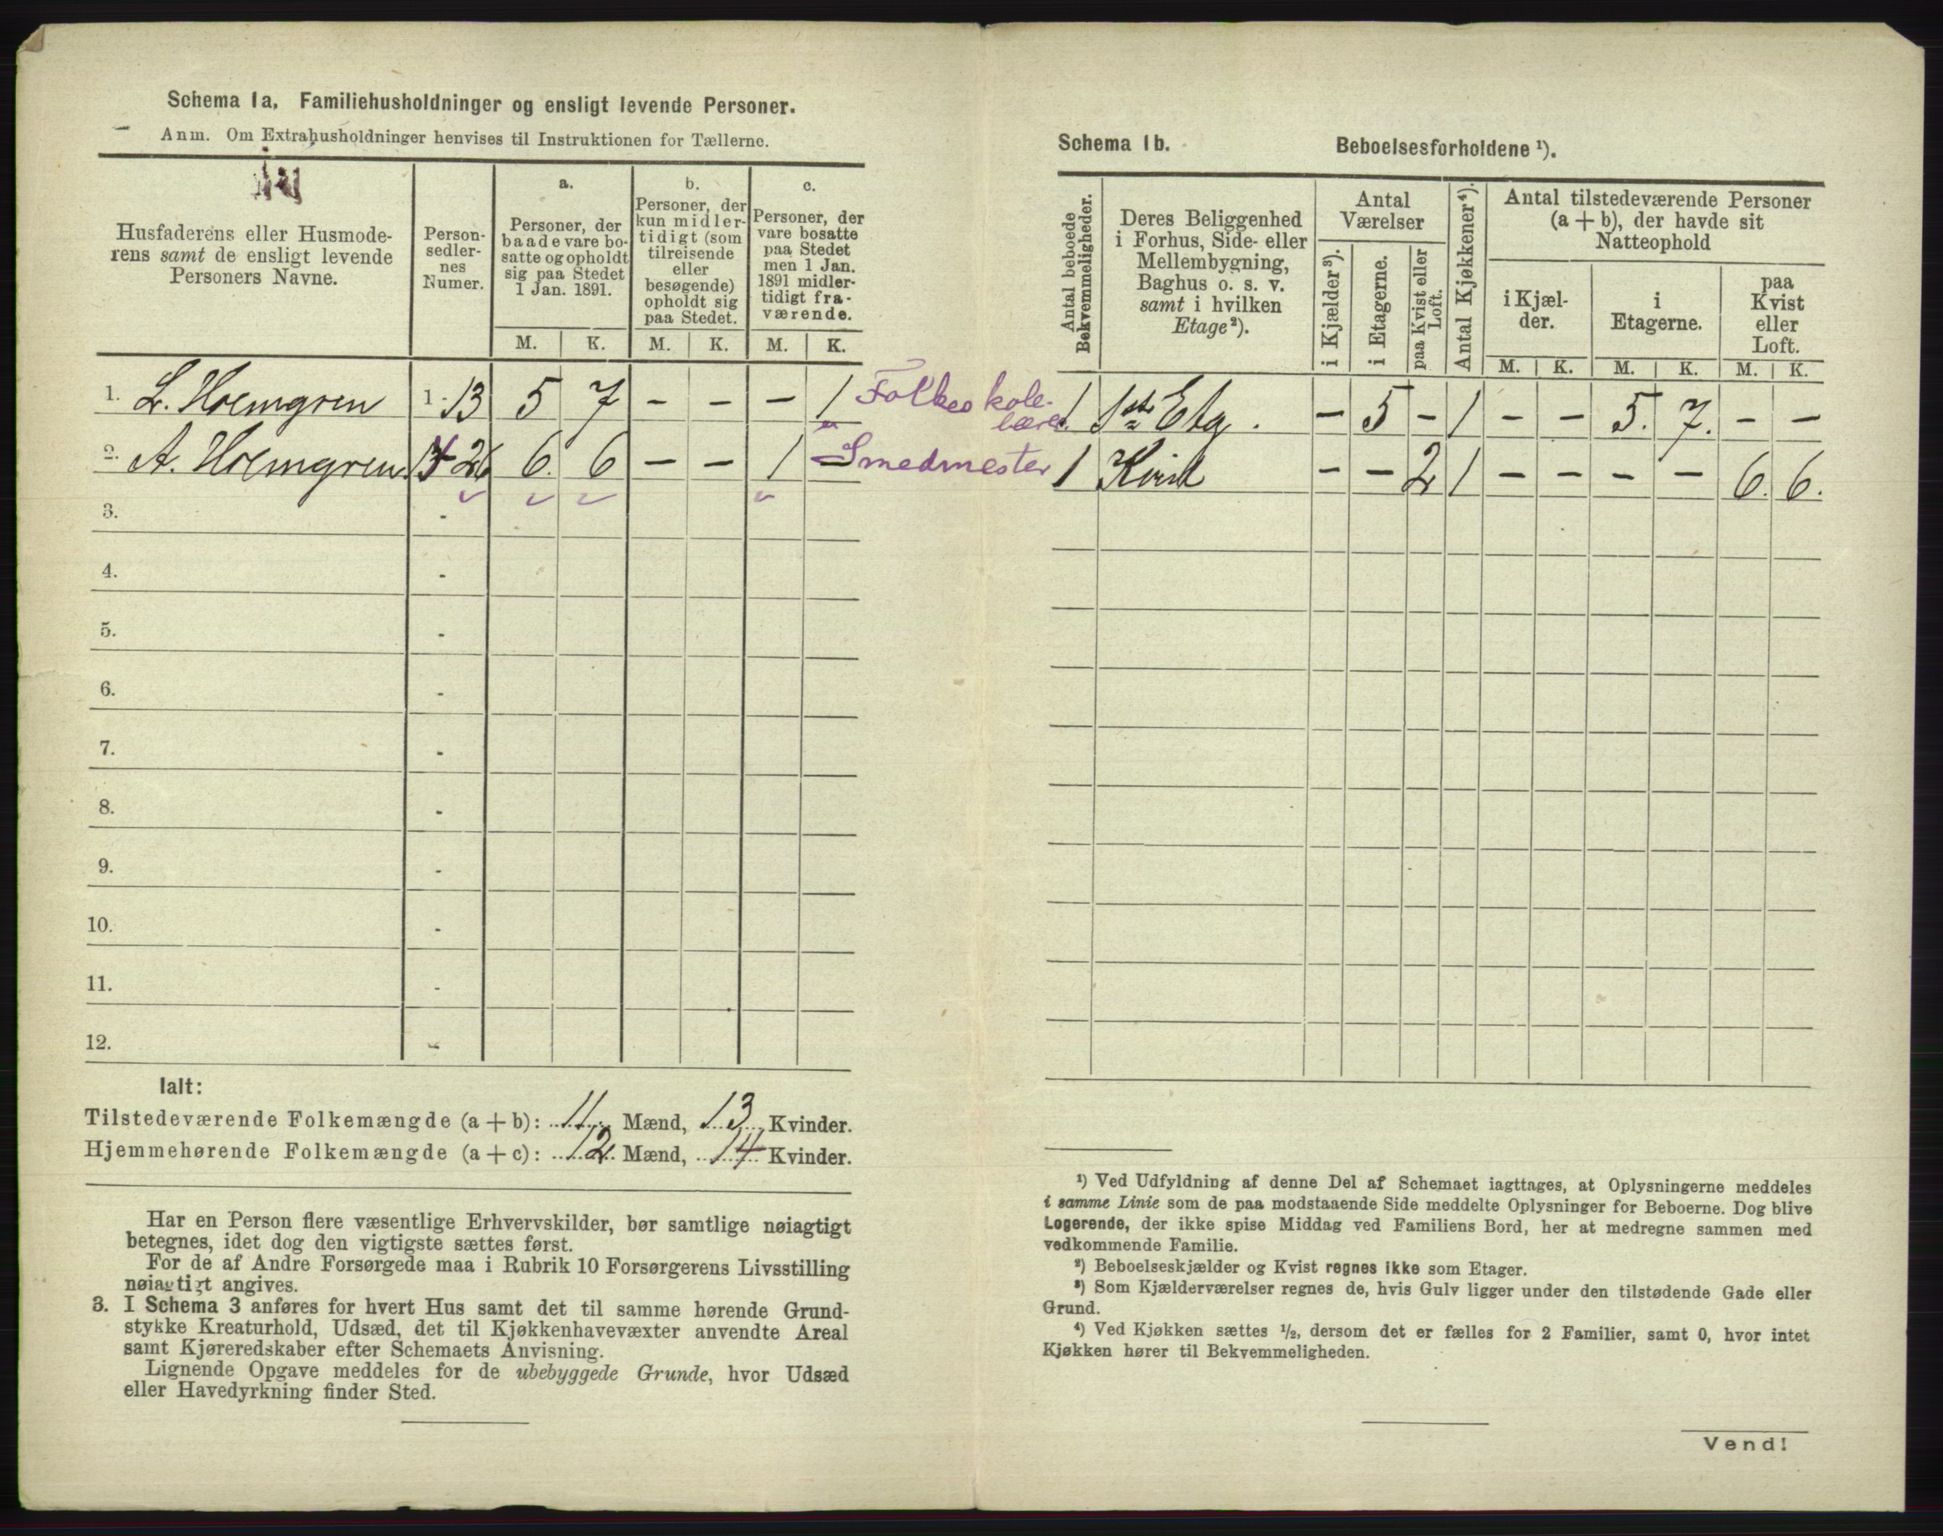 Schema 1a. Familiehusholdninger og ensligt levende Personer.
Anm. Om Extrahusholdninger henvises til Instruktionen for Tællerne.
Husfaderens eller Husmode-
rens samt de ensligt levende
Personers Navne.
Person-
sedler-
nes
Numer.
a.
Personer, der
baade vare bo-
satte og opholdt
sig paa Stedet
1 Jan. 1891.
b.
Personer, der
kun midler-
tidigt (som
tilreisende
eller
besøgende)
opholdt sig
paa Stedet.
c.
Personer, der
vare bosatte
paa Stedet
men 1 Jan.
1891 midler-
tidigt fra-
værende.
M. K. M. K. M. K.
1. L. Holmgren 1-13 5 7 – – – 1 Folkeskole-
lærer.
2. A. Holmgren. 14-26 6. 6 – – 1 – Smedmester
3. -
4. -
5. -
6. -
7. -
8. -
9. -
10. -
11. -
12. -
Ialt:
Tilstedeværende Folkemængde (a + b): 11 Mænd, 13 Kvinder.
Hjemmehørende Folkemængde (a + c): 12 Mænd, 14 Kvinder.
Har en Person flere væsentlige Erhvervskilder, bør samtlige nøiagtigt
betegnes, idet dog den vigtigste sættes først.
For de af Andre Forsørgede maa i Rubrik 10 Forsørgerens Livsstilling
nøiagtigt angives.
3. I Schema 3 anføres for hvert Hus samt det til samme hørende Grund-
stykke Kreaturhold, Udsæd, det til Kjøkkenhavevæxter anvendte Areal
samt Kjøreredskaber efter Schemaets Anvisning.
Lignende Opgave meddeles for de ubebyggede Grunde, hvor Udsæd
eller Havedyrkning finder Sted.
Schema 1b. Beboelsesforholdene ¹).
Antal beboede
Bekvemmeligheder.
Deres Beliggenhed
i Forhus, Side- eller
Mellembygning,
Baghus o. s. v.
samt i hvilken
Etage²).
Antal
Værelser
i Kjælder³).
i Etagerne.
paa Kvist eller
Loft.
Antal Kjøkkener⁴).
Antal tilstedeværende Personer
(a + b), der havde sit
Natteophold
i Kjæl-
der.
i
Etagerne.
paa
Kvist
eller
Loft.
M. K. M. K. M. K.
1 1ste Etg. – 5 – 1 – – 5. 7. – –
1 Kvist – – 2 1 – – – – 6. 6.
¹) Ved Udfyldning af denne Del af Schemaet iagttages, at Oplysningerne meddeles
i samme Linie som de paa modstaaende Side meddelte Oplysninger for Beboerne. Dog blive
Logerende, der ikke spise Middag ved Familiens Bord, her at medregne sammen med
vedkommende Familie.
²) Beboelseskjælder og Kvist regnes ikke som Etager.
³) Som Kjælderværelser regnes de, hvis Gulv ligger under den tilstødende Gade eller
Grund.
⁴) Ved Kjøkken sættes ½, dersom det er fælles for 2 Familier, samt 0, hvor intet
Kjøkken hører til Bekvemmeligheden.
Vend!